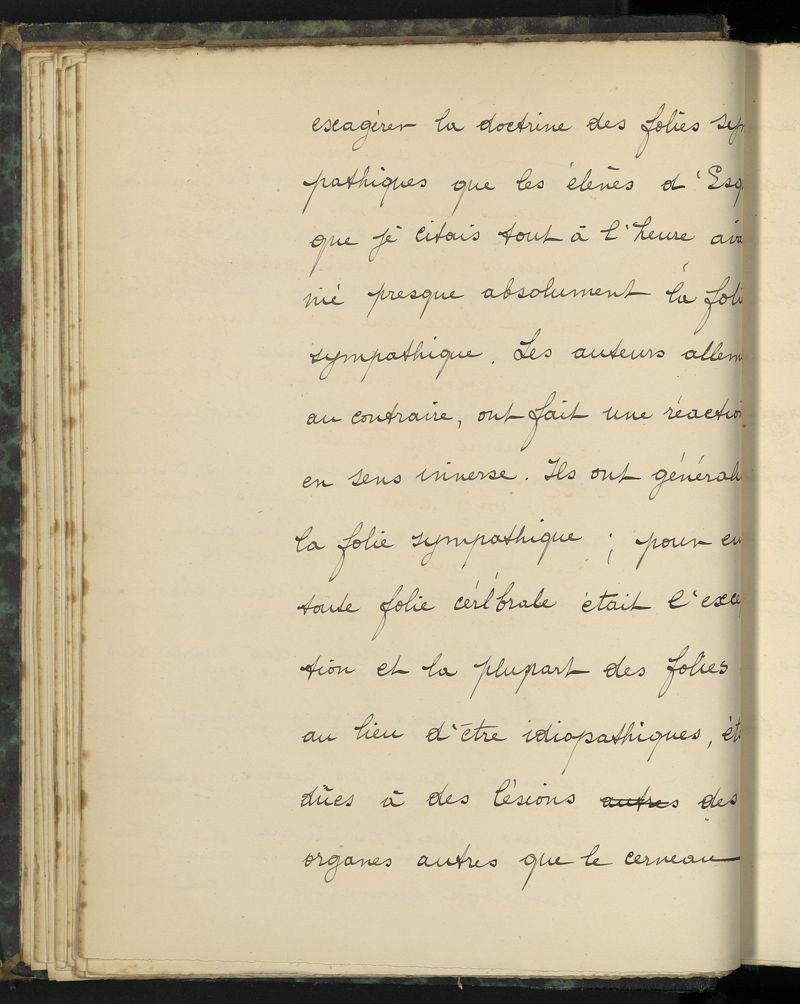 exagérer la doctrine des folies sym
pathiques que les élèves d'Esq
que je citais tout à l'heure ava
nié presque absolument la foli
sympathique. Les auteurs allem
au contraire, ont fait une réaction
en sens inverse. Ils ont générali
la folie sympathique ; pour eu
toute folie cérébrale était l'excep
tion et la plupart des folies
au lieu d'être idiopathiques, éta
dûes à des lésions autres des
organes autres que le cerveau